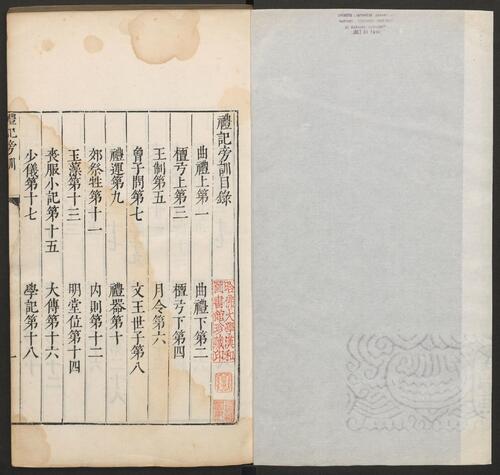 禮記旁訓目錄
曲禮上第一
曲禮下第二
檀弓上第三
檀弓下第四
王制第五
月令第六
曾子問第七
文王世子第八
禮運第九
禮器第十
郊祭牲第十一
内則第十二
玉藻第十三
明堂位第十四
喪服小記第十五
大傳第十六
少儀第十七
學記第十八
禮記旁訓
一
哈佛大學漢和
圖書館珍藏印